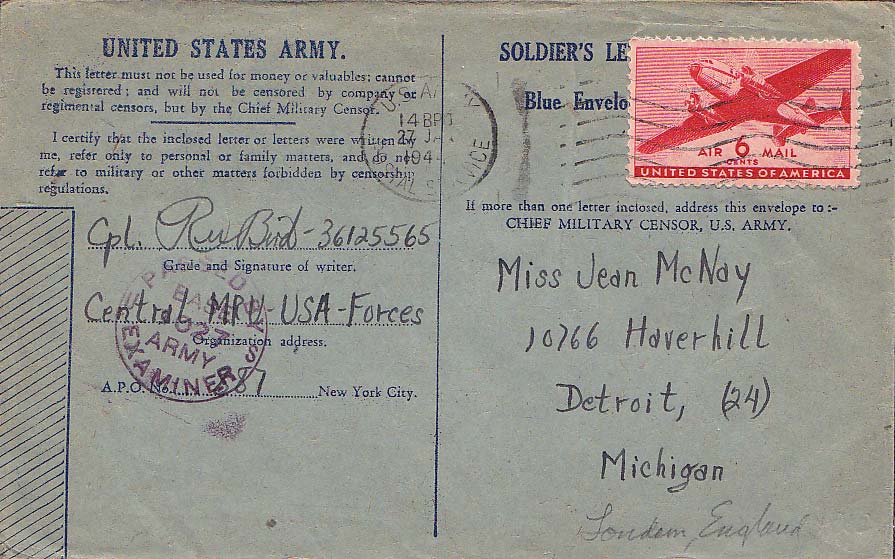 UNITED STATES ARMY.
This letter must not be used for money or valuables; cannot
be registered; and will not be censored by company or
regimental censors, but by the Chief Military Censor.
I certify that the inclosed letter or letters were written by
me, refer only to personal or family matters, and do not
refer to military or other matters forbidden by censorship
regulations.
Cpl. Bird - 36125565
Grade and Signature of writer.
Central MPU - USA - Forces
Organization address.
A.P.O. No. 887 New York City.
PASSED BY
BASE
ARMY
EXAMINER
14 BPO
27
SOLDIER'S
Blue
AIR 6 MAIL
CENTS
UNITED STATES OF AMERICA
If more than one letter inclosed, address this envelope to :-
CHIEF MILITARY CENSOR, U.S. ARMY.
Miss Jean McNay
10766 Haverhill
Detroit, (24)
Michigan
London, England